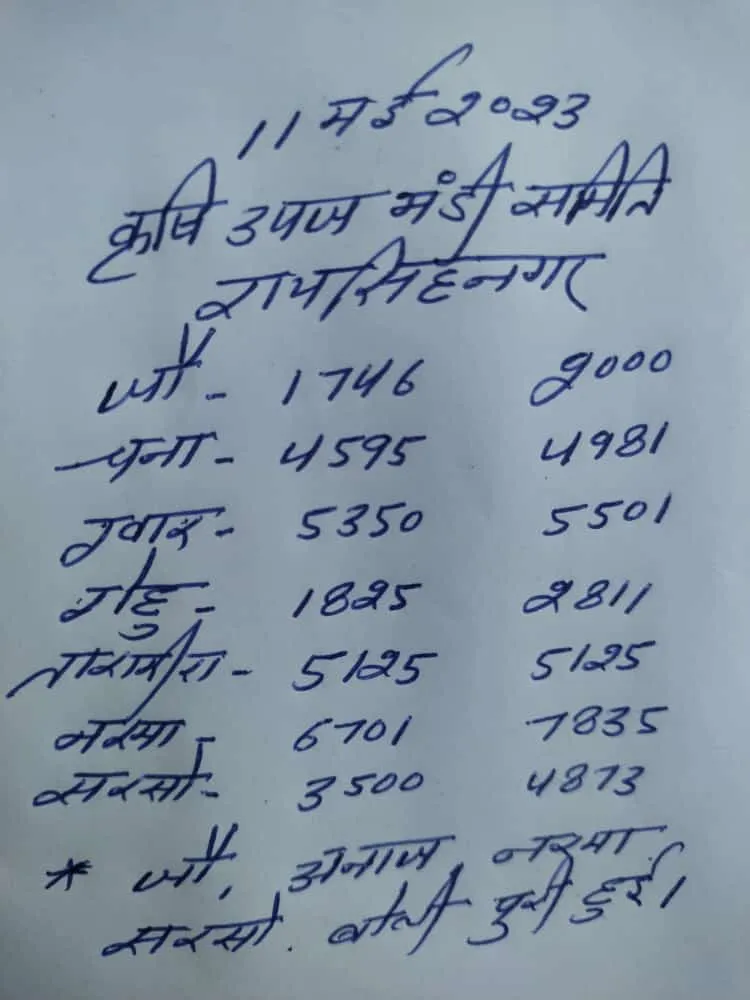 11 मई 2023
कृषि उपज मंडी समिति
रायसिंहनगर
जौ - 1746 2000
चना - 4595 4981
ग्वार - 5350 5501
गेहु - 1825 2811
तारामीरा - 5125 5125
नरमा - 6701 7835
सरसो - 3500 4873
* जौ, अनाज, नरमा
सरसो. बोली पुरी हुई।